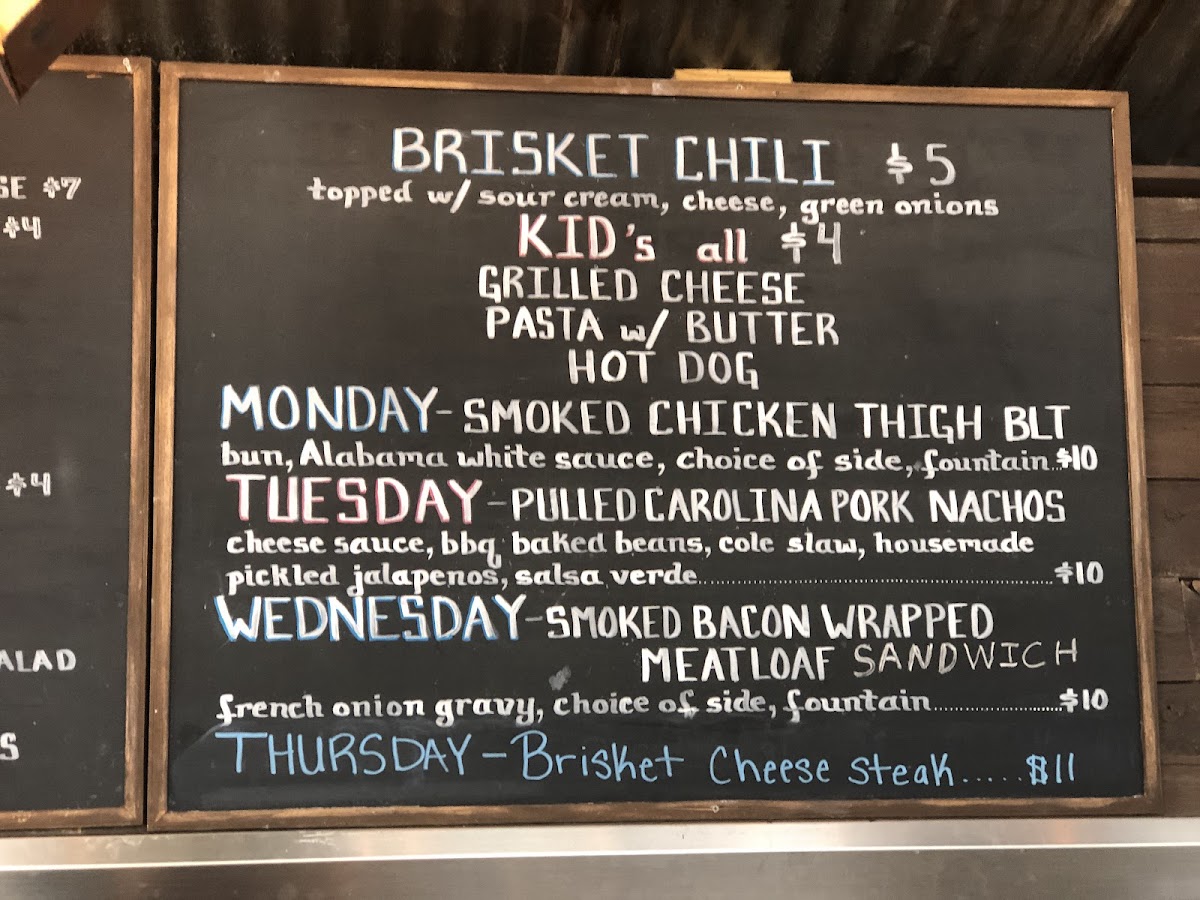 BRISKET CHILI $5
topped w/ sour cream, cheese, green onions
KID's all $4
GRILLED CHEESE
PASTA w/ BUTTER
HOT DOG
MONDAY-SMOKED CHICKEN THIGH BLT
bun, Alabama white sauce, choice of side, fountain..$10
TUESDAY-PULLED CAROLINA PORK NACHOS
cheese sauce, bbq baked beans, cole slaw, housemade
pickled jalapenos, salsa verde..........$10
WEDNESDAY-SMOKED BACON WRAPPED
MEATLOAF SANDWICH
french onion gravy, choice of side, fountain..........$10
THURSDAY-Brisket Cheese steak.....$11
$7
$4
$4